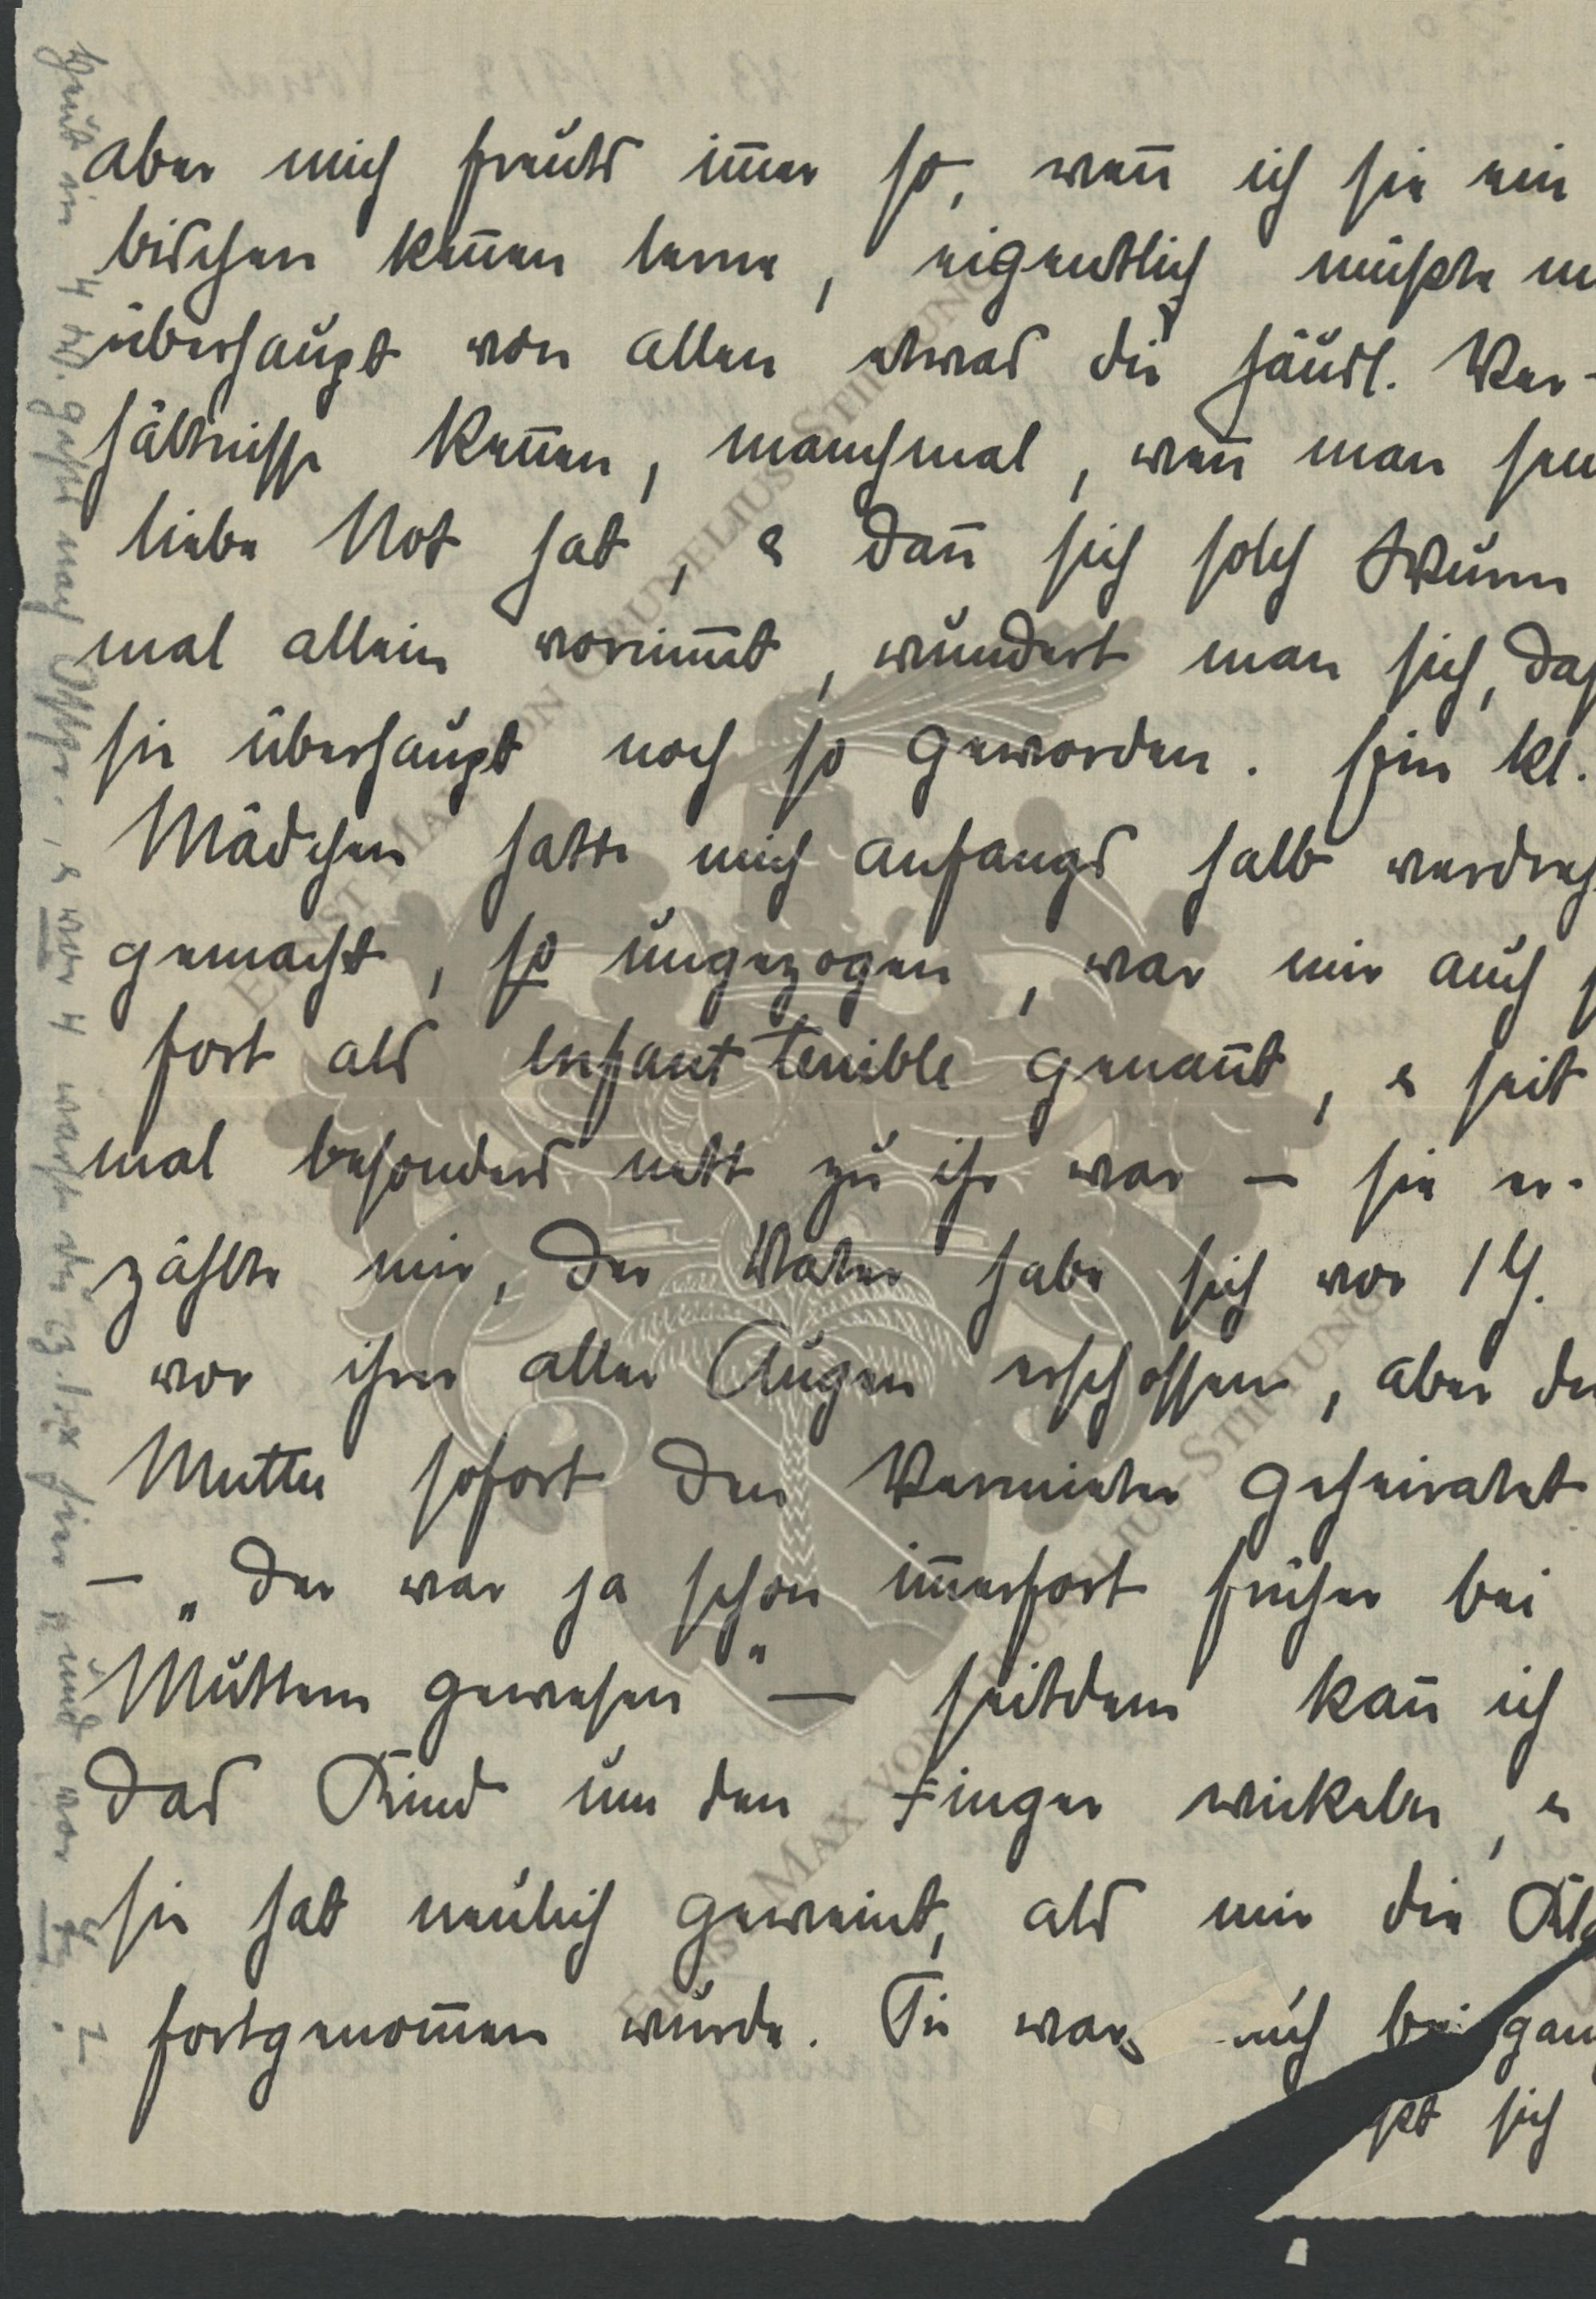 aber mich freuts im̅er so, wen̅ ich sie ein
bischen ken̅en lerne, eigentlich müsste
überhaupt von allen etwas die häusl. Ver-
hältnisse ken̅en, manchmal, wen̅ man
liebe Not hat, & dan̅ sich solch Wurm
mal allein vornim̅t, wundert man sich,
sie überhaupt noch so geworden. Ein kl.
Mädchen hatte mich anfangs halb
gemacht, so ungezogen, war mir auch
fort als enfant terrible genan̅t, & seit
mal besonders nett zu ihr war – sie er-
zählte mir, der Vater habe sich vor 1 J.
vor ihrer aller Augen erschossen, aber
Mutter sofort den Vermieter geheiratet
– „Der war ja schon im̅erfort früher bei
Muttern gewesen" – seitdem kan̅ ich
das Kind um den Finger wickeln, &
sie hat neulich geweint, als mir die
fortgenom̅en wurde. Sie war
sich
Heut in 4 W. geht nach & vor 4 hier und vor